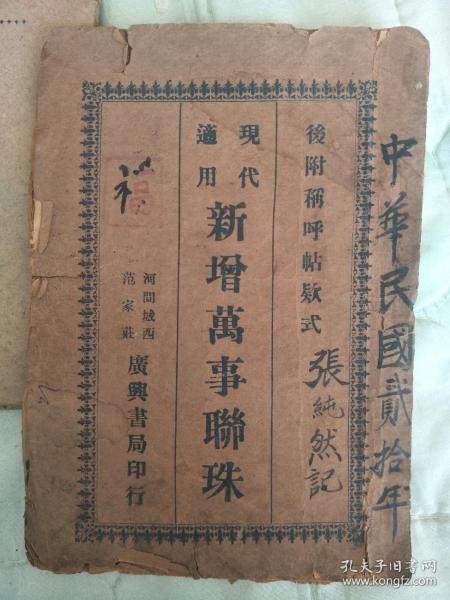 中華民國貳拾年
後附稱呼帖欵式
張純然記
現代
適用
新增萬事聯珠
河間城西
范家莊
廣興書局印行
孔夫子旧书网
www.kongfz.com